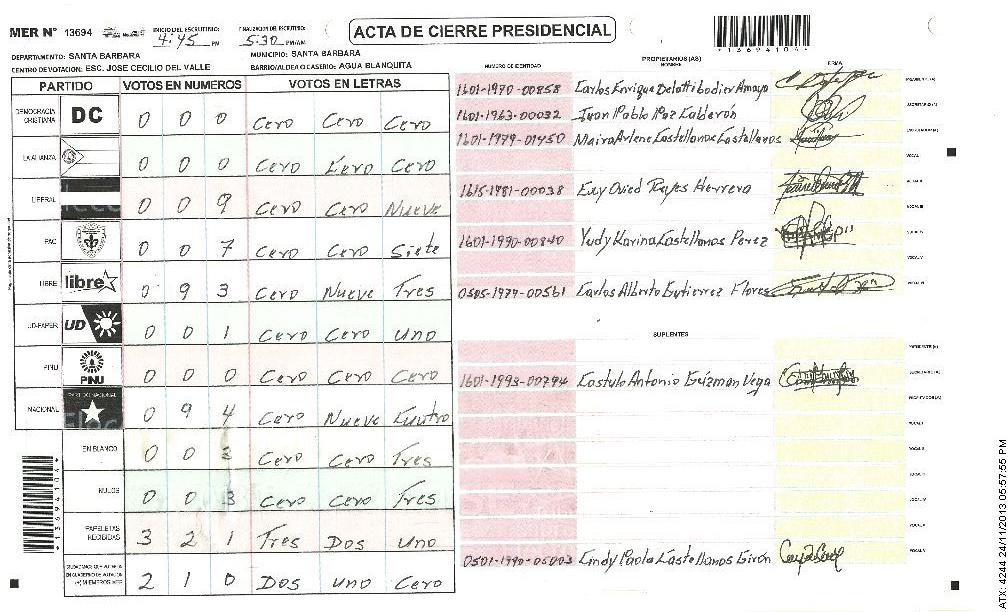 MER N° 13694 INICIO DEL ESCRUTINIO: 4:45 PM FINALIZACION DEL ESCRUTINIO: 5:30 PM/AM
ACTA DE CIERRE PRESIDENCIAL
13694104
DEPARTAMENTO: SANTA BARBARA MUNICIPIO: SANTA BARBARA
CENTRO DE VOTACION: ESC. JOSE CECILIO DEL VALLE BARRIO/ALDEA O CASERIO: AGUA BLANQUITA
PARTIDO VOTOS EN NUMEROS VOTOS EN LETRAS
DEMOCRACIA CRISTIANA DC 0 0 0 Cero Cero Cero
LA ALIANZA 0 0 0 Cero Cero Cero
LIBERAL 0 0 9 Cero Cero Nueve
PAC 0 0 7 Cero Cero Siete
LIBRE libre 0 9 3 Cero Nueve Tres
UD-FAPER UD 0 0 1 Cero Cero Uno
PINU PINU 0 0 0 Cero Cero Cero
NACIONAL PARTIDO NACIONAL 0 9 4 Cero Nueve Cuatro
EN BLANCO 0 0 3 Cero Cero Tres
NULOS 0 0 3 Cero Cero Tres
PAPELETAS RECIBIDAS 3 2 1 Tres Dos Uno
CIUDADANOS QUE VOTARON EN CUADERNO DE VOTACION (+) MIEMBROS MER 2 1 0 Dos Uno Cero
13694104
NUMERO DE IDENTIDAD PROPIETARIOS (AS) NOMBRE FIRMA
1601-1970-00858 Carlos Enrique Delattibodier Amaya PRESIDENTE (A)
1601-1963-00032 Juan Pablo Paz Calderón SECRETARIO (A)
1601-1979-01450 Maira Arlene Castellanos Castellanos ESCRUTADOR (A)
VOCAL I
1615-1981-00038 Euy Ovied Reyes Herrera VOCAL II
VOCAL III
1601-1990-00840 Yudy Karina Castellanos Perez VOCAL IV
VOCAL V
0505-1979-00561 Carlos Alberto Gutierrez Flores VOCAL VI
SUPLENTES
PRESIDENTE (A)
1601-1993-00794 Costulo Antonio Guzman Vega SECRETARIO (A)
ESCRUTADOR (A)
VOCAL I
VOCAL II
VOCAL III
VOCAL IV
VOCAL V
0501-1990-05003 Cindy Paola Castellanos Girón
ATX: 4244 24/11/2013 05:57:55 PM